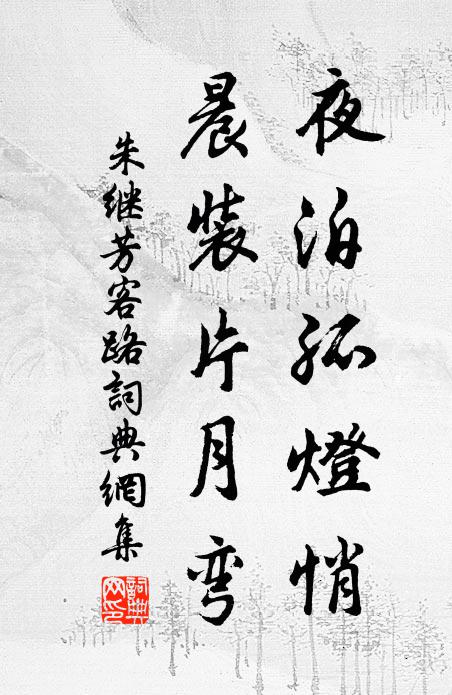 夜泊孤燈悄
晨裝片月彎
朱继芳客路詞典網集